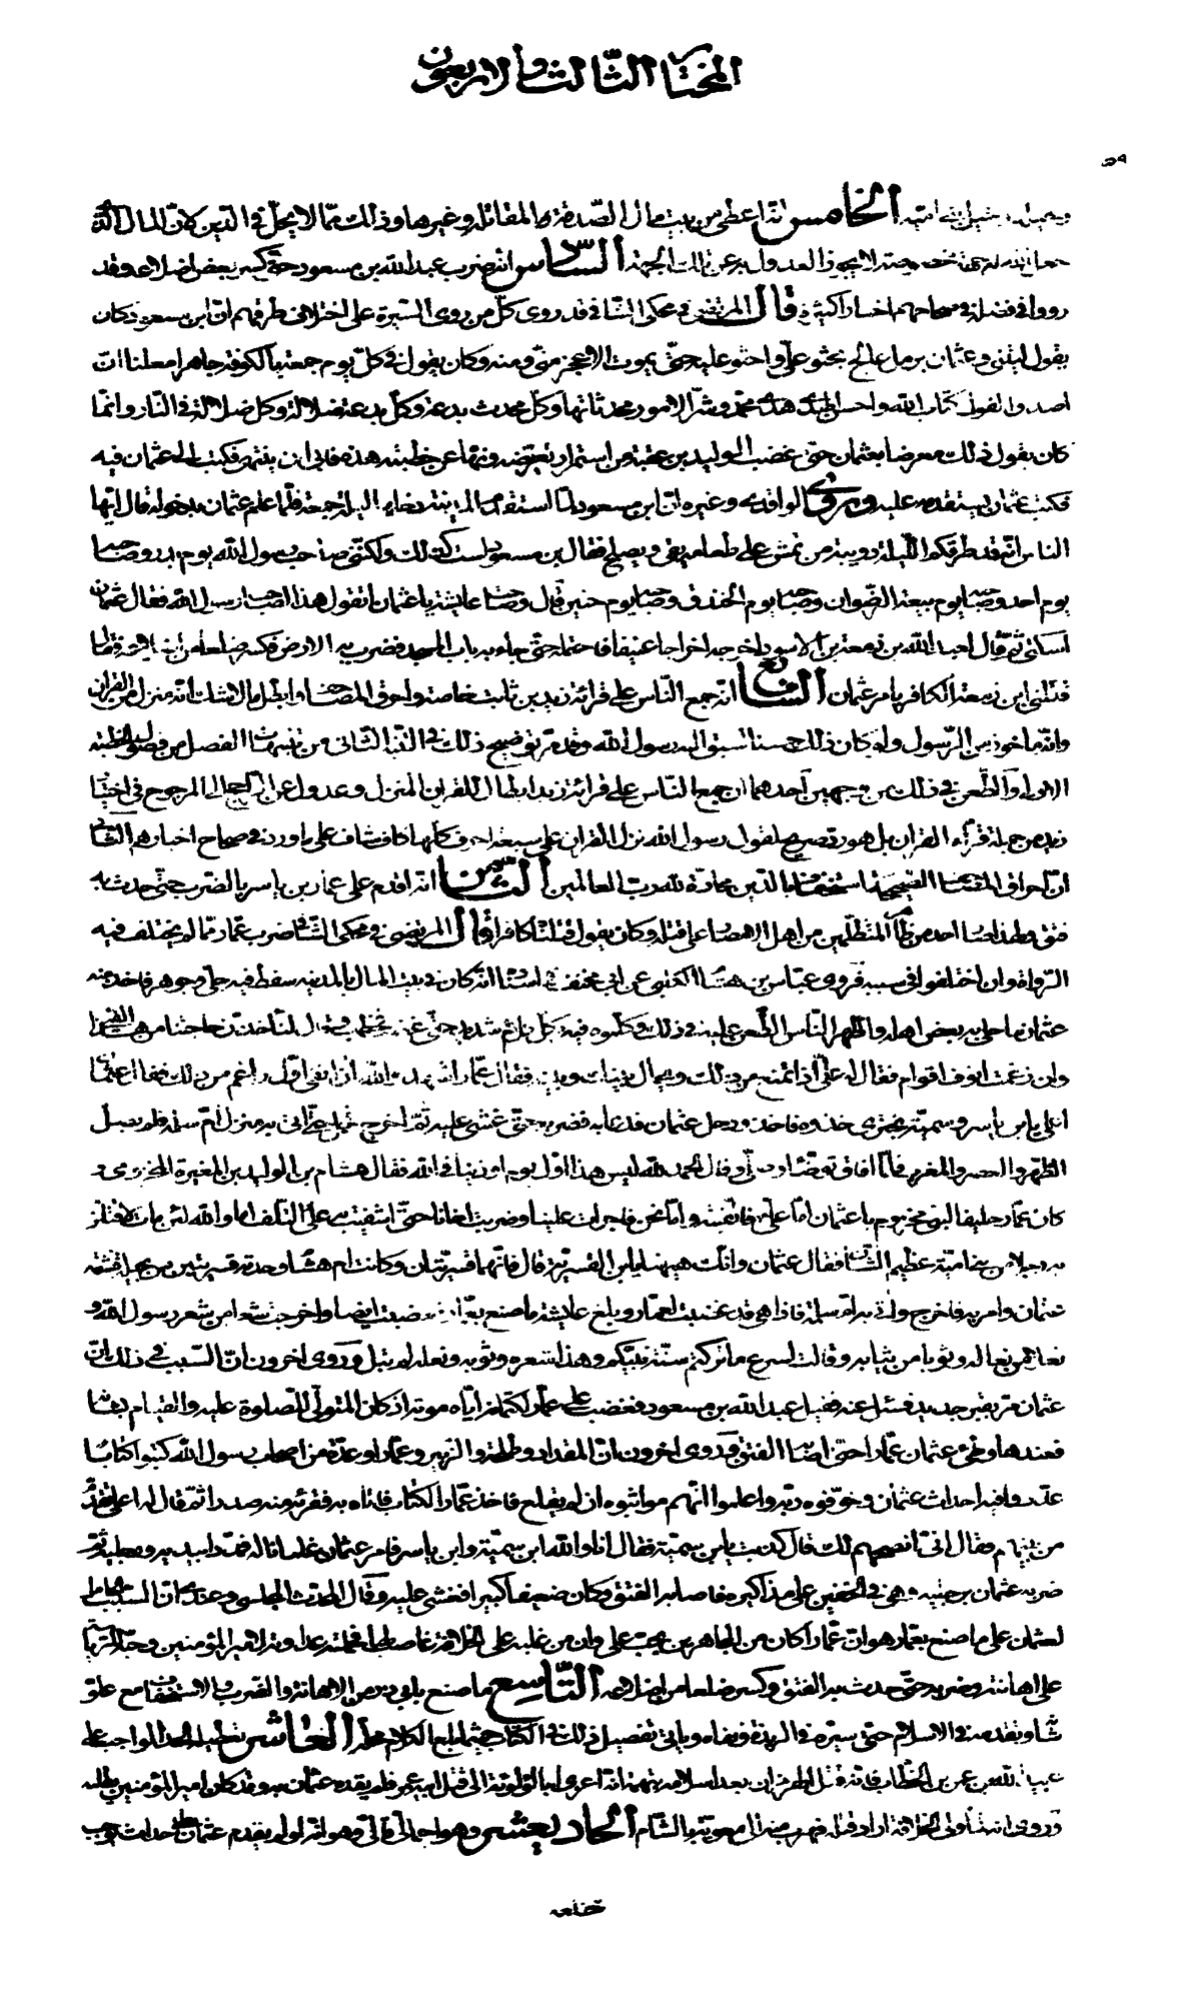 المختار الثالث والاربعون
الخامس انه اعطى من بيت مال الصدقة المقاتلة وغيرها وذلك ممّا لا يحلّ في الدين لانّ المال الّذى
العدول به عن تلك الجهة السّادس انه ضرب عبد الله بن مسعود حتى كسر بعض اضلاعه وقد
رووا في فضله في صحاحهم اخبارا كثيرة قال المرتضى في محكى الشافي قد روى كلّ من روى السيرة على اختلاف طرقهم انّ ابن مسعود كان
يقول ليتنى وعثمان برمل عالج يحثو علىّ واحثو عليه حتّى يموت الاعجز منّى ومنه وكان يقول في كلّ يوم جمعة بالكوفة جاهرا معلنا انّ
اصدق القول كتاب الله واحسن الهدى هدى محمّد وشرّ الامور محدثاتها وكلّ محدث بدعة وكلّ بدعة ضلالة وكل ضلالة في النّار وانّما
كان يقول ذلك معرضا بعثمان حتى غضب الوليد بن عقبة من استمرار تعريضه ونهاه عن خطبته هذه فابى ان ينتهى فكتب الى عثمان فيه
فكتب عثمان يستقدمه عليه وروى الواقدى وغيره انّ ابن مسعود لمّا استقدم المدينة دخلها ليلة جمعة فلمّا علم عثمان بدخوله قال ايّها
الناس انّه قد طرقكم اللّيلة دويبة من تمش على طعامه يقئ ويصلح فقال ابن مسعود لست كذلك ولكنّى صاحب رسول الله يوم بدر وصاحبه
يوم احد وصاحبه يوم بيعة الرّضوان وصاحبه يوم الخندق وصاحبه يوم حنين قال وصاحت عايشة يا عثمان اتقول هذا لصاحب رسول الله فقال عثمان
اسكتى ثمّ قال لعبد الله بن زمعة بن الاسود اخرجه اخراجا عنيفا فاحتمله حتّى جاء به باب المسجد فضرب به الارض فكسر ضلعا من اضلاعه فقال
قتلنى ابن زمعة الكافر بامر عثمان السّابع انّه جمع النّاس على قرائة زيد بن ثابت خاصة واحرق المصاحف وابطل ما لا شك انّه منزل من القرآن
وانّه ماخوذ من الرّسول ولو كان ذلك حسنا لسبق اليه رسول الله وقد مرّ توضيح ذلك في التّنبيه الثّانى من تنبيهات الفصل من فصول الخطبة
الاولى والطّعن في ذلك من وجهين احدهما ان جمع النّاس على قرائة زيد ابطال للقران المنزل وعدول عن الرّاجح الى المرجوح في اختيار
زيد من جملة قرّاء القرآن بل هو ردّ صريح لقول رسول الله نزل القرآن على سبعة احرف كلّها كاف شاف على ما ورد في صحاح اخبارهم الثّانى
انّ احراق المصاحف الصحيحة استخفاف بالدّين محادة لله ربّ العالمين الثّامن انّه اقدم على عمار بن ياسر بالضرب حتى حدث به
فتق ولهذا صار احد من ظاهر المتظلّمين من اهل الامصار على قتله وكان يقول قتلنا كافرا قال المرتضى في محكى الشّافى ضرب عمّار ممّا لم يختلف فيه
الرّواة وان اختلفوا في سببه فروى عبّاس بن هشام الكلبى عن ابى مخنف في اسناده انّه كان في بيت المال بالمدينة سفط فيه حلى وجوهر فاخذ منه
عثمان ما حلى به بعض اهله واظهر النّاس الطّعن عليه في ذلك وكلّموه فيه بكلّ كلام شديد حتّى غضب فخطب وقال لنأخذنّ حاجتنا من هذا الفئ
وان زعمت انوف اقوام فقال له علىّ اذا تمنع من ذلك ويحال بينك وبينه فقال عمّار اشهد الله انّ انفى اوّل راغم من ذلك فقال عثمان
اعلىّ يا بن ياسر وسميّة تجترى خذوه فاخذ ودخل عثمان فدعا به فضربه حتّى غشى عليه ثمّ اخرج فحمل حتّى اتى به منزل امّ سلمة فلم يصل
الظهر والعصر والمغرب فلمّا افاق توضّأ وصلّى وقال الحمد لله ليس هذا اوّل يوم اوذينا في الله فقال هشام بن الوليد بن المغيرة المخزومى و
كان عمّار حليفا لبنى مخزوم يا عثمان امّا علىّ فاتّقيته وامّا نحن فاجترات علينا وضربت اخانا حتّى اشفيت به على التّلف اما والله لئن مات لاقتلنّ
به رجلا من بنى اميّة عظيم الشّان فقال عثمان وانّك ههنا يا بن القسريّة قال فانّهما قسريّتان وكانت امّ هشام وجدّته قسريّتين من بجيلة فشتمه
عثمان وامر به فاخرج واتى به امّ سلمة فاذا هى قد غضبت لعمّار وبلغ عايشة ما صنع بعمّار فغضبت ايضا واخرجت شعرا من شعر رسول الله و
نعلا من نعاله وثوبا من ثيابه وقالت لسرع ما تركتم سنّة نبيّكم وهذا شعره وثوبه ونعله لم يبل وروى اخرون انّ السّبب في ذلك انّ
عثمان مرّ بقبر جديد فسئل عنه فقيل عبد الله بن مسعود فغضب على عمّار لكتمانه ايّاه موته اذ كان المتولّى للصّلوة عليه والقيام بشانه
فعندها وطئ عثمان عمّارا حتّى اصابه الفتق وروى اخرون انّ المقداد وطلحة والزبير وعمّارا وعدّة من اصحاب رسول الله كتبوا كتابا
عدّدوا فيه احداث عثمان وخوّفوه ربّه واعلموا انّهم مواثبوه ان لم يقلع فاخذ عمّار الكتاب فاتاه به فقرء منه صدرا ثمّ قال له اعلىّ تقدم
من بينهم فقال انّى انصحهم لك قال كذبت يا بن سميّة فقال انا والله ابن سميّة وابن ياسر فامر عثمان غلمانا له فمدّوا بيديه ورجليه ثمّ
ضربه عثمان برجليه وهى في الخفّين على مذاكيره فاصابه الفتق وكان ضعيفا كبيرا فغشى عليه وقال المحدّث المجلسى وعندى انّ السّبب الحامل
لعثمان على ما صنع بعمّار هو انّ عمّارا كان من المجاهرين بحبّ على وان من غلبه على الخلافة غاصب لها فحملته عداوته لامير المؤمنين وحبّه للرّياسة
على اهانته وضربه حتّى حدث به الفتق وكسر ضلعا من اضلاعه التّاسع ما صنع بابى ذر من الاهانة والضرب والاستخفاف مع علوّ
شانه وتقدّمه في الاسلام حتى سيّره الى الربذة ونفاه وياتى تفصيل ذلك في الكتاب حيثما بلغ الكلام محلّه العاشر تعطيله الحدّ الواجب على
عبيد الله بن عمر بن الخطّاب فانه قتل الهرمزان بعد اسلامه بتهمة انّه اغرى ابا لؤلؤة الى قتل ابيه عمر فلم يقده عثمان به وقد كان امير المؤمنين يطلبه
وروى انه لمّا ولى الخلافة اراد قتله فهرب منه الى معوية بالشّام الحاديعشر وهو اجمالى قالى وهو انّه لو لم يقدم عثمان على احداث يوجب
خلعه